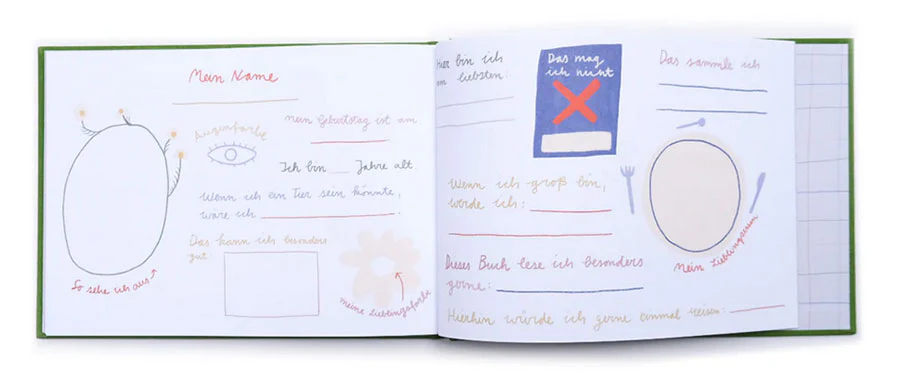 Mein Name
Augenfarbe
Mein Geburtstag ist am
Ich bin ___ Jahre alt.
Wenn ich ein Tier sein könnte,
wäre ich
Das kann ich besonders
gut
So sehe ich aus
meine Lieblingsfarbe
hier bin ich
am liebsten:
Das mag
ich nicht
Das sammle ich
Wenn ich groß bin,
werde ich:
Mein Lieblingsessen
Dieses Buch lese ich besonders
gerne:
Hierhin würde ich gerne einmal reisen: